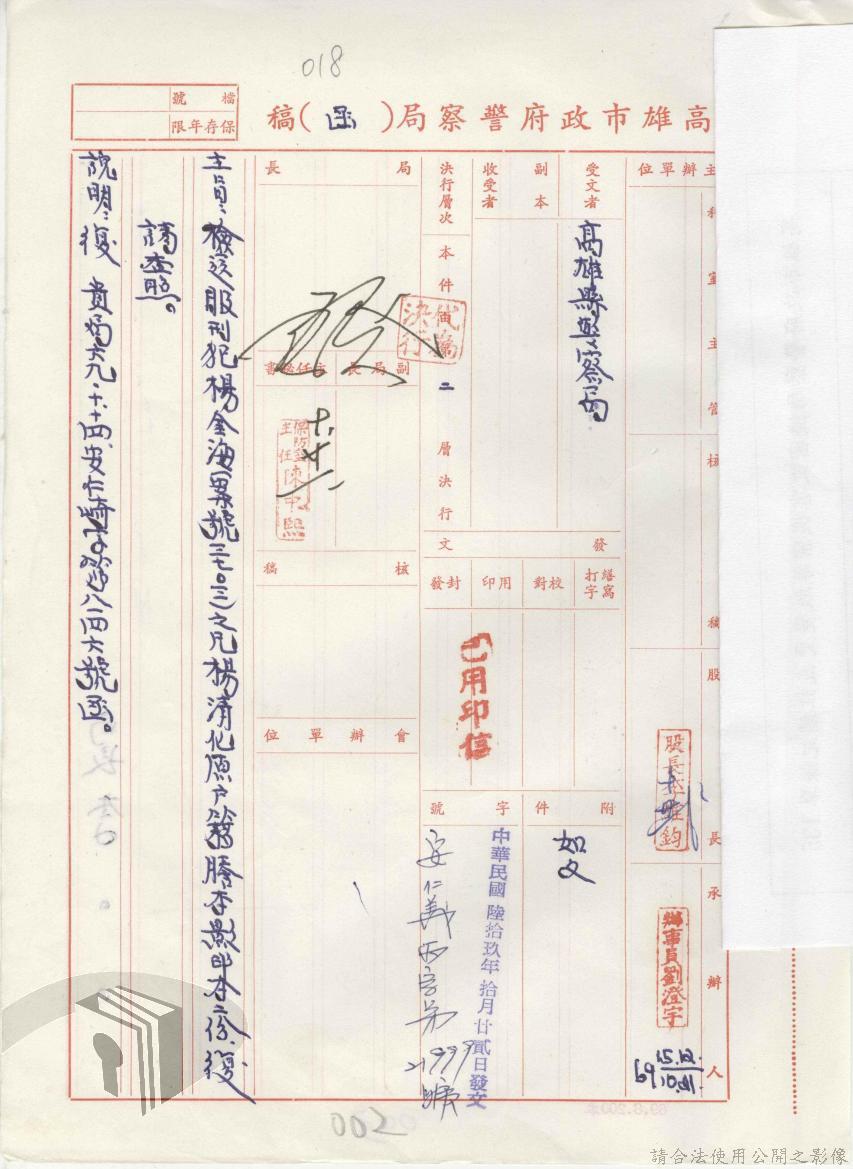 018
檔號
保存年限
高雄市政府警察局(函)稿
主辦單位
科室主管
核稿
股長
承辦人
受文者
高雄縣警察局
副本
收受者
決行層次
本件由二層決行
代為決行
發文
繕寫
打字
校對
用印
封發
已用印信
附件
如文
字號
中華民國陸拾玖年拾月廿貳日發文
安仁義丙字第21999號
局長
副局長
主任秘書
保防室
主任陳中熙
核稿
會辦單位
辦事員劉澄宇
69
15.12.
10.21.
主旨:檢送服刑犯楊金海票號二七0三之兄楊清化原戶籍謄本影印本二份,復
請查照。
說明:復 貴局六九.十.十四.安仁琦字第八一四六號函。
002
請合法使用公開之影像